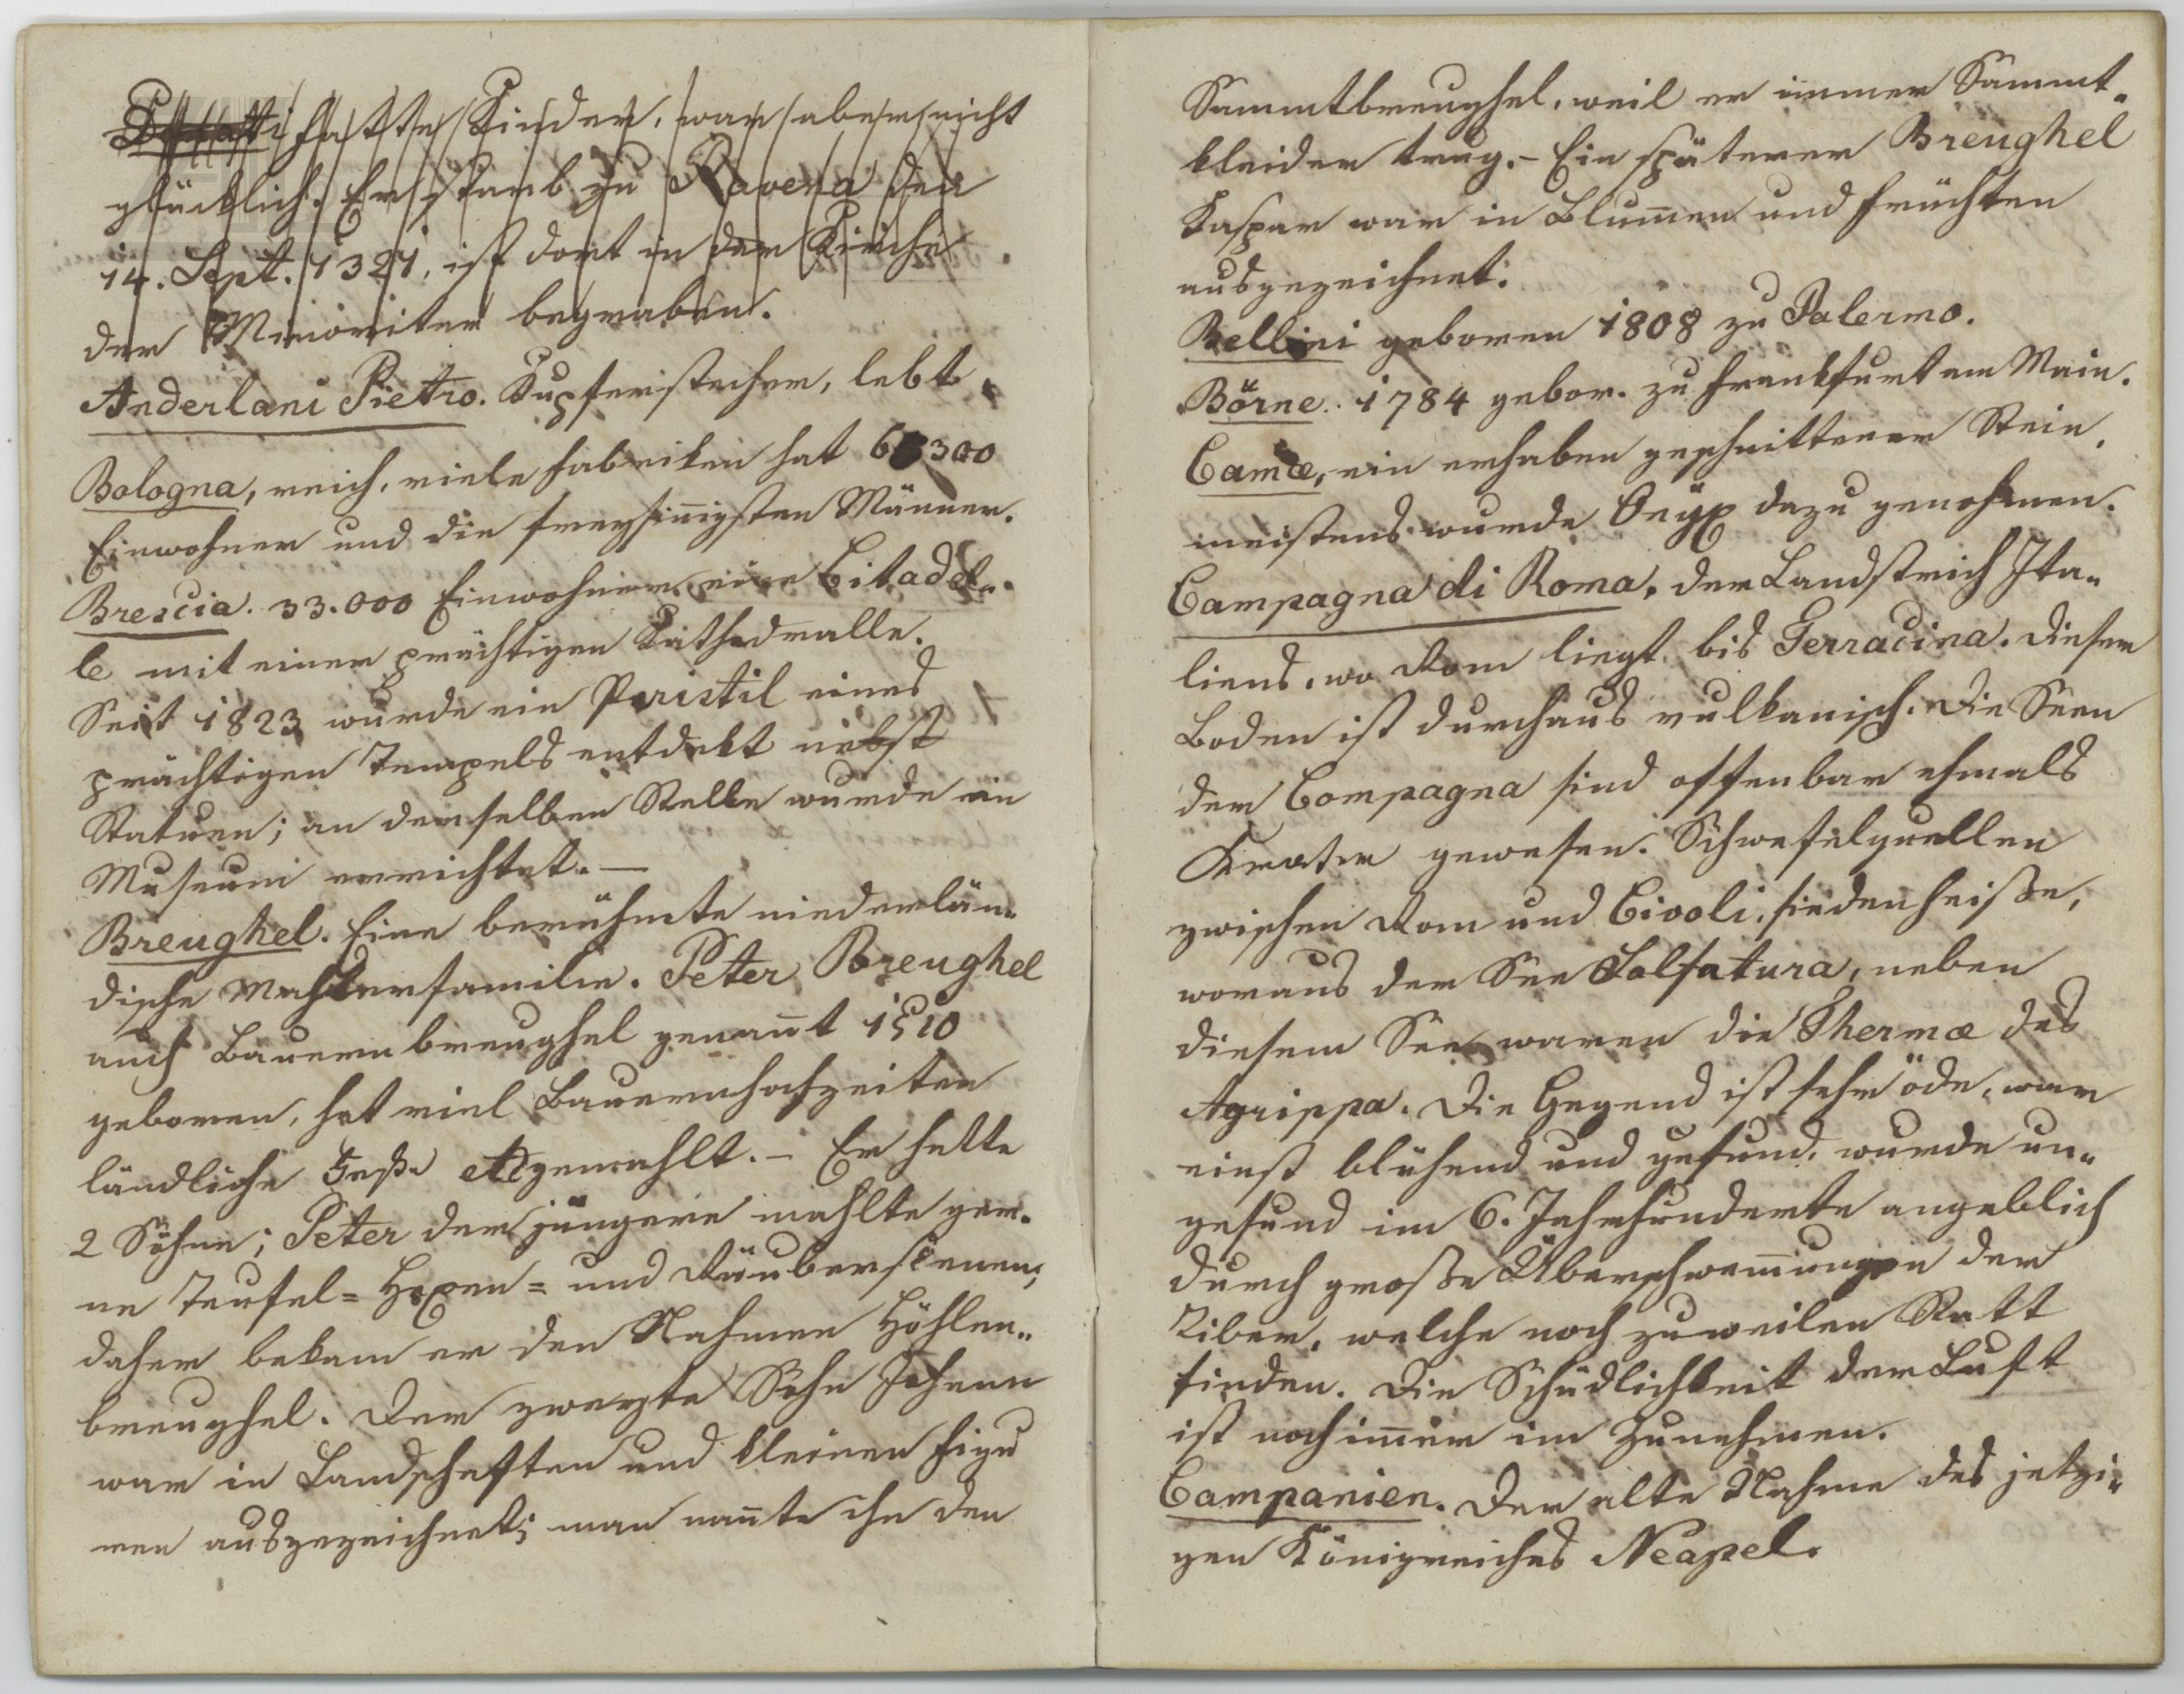 Donatti hatte Kinder, war aber nicht
glücklich. Er starb zu Ravena den
14. Sept. 1321, ist dort in der Kirche
der Minoriten begraben.
Anderlani Pietro. Kupferstecher, lebt.
Bologna, reich, viele Fabriken hat 300
Einwohner und die freysinnigsten Männer.
Brescia. 33.000 Einwohner eine Citadel-
le mit einer prächtigen Kathedralle.
Seit 1823 wurde ein Peristil eines
prächtigen Tempels entdekt nebst
Statuen; an derselben Stelle wurde ein
Museum errichtet. —
Breughel. Eine berühmte niederlän-
dische Mahlerfamilie. Peter Breughel
auch Bauernbreughel genannt 1510
geboren, hat viel Bauernhochzeiten
ländliche Feste gemahlt. – Er hatte
2 Söhne; Peter der jüngere mahlte ger-
ne Teufel= Hexen= und Räuberscenen;
daher bekam er den Nahmen Höhlen-
breughel. Der zweyte Sohn Johann
war in Landschaften und kleinen Figu
ren ausgezeichnet; man nannte ihn den
Sammtbreughel, weil er immer Sammt-
kleider trug. – Ein späterer Breughel
Kaspar war in Blumen und Früchten
ausgezeichnet.
Bellini geboren 1808 zu Palermo.
Börne. 1784 gebor. zu Frankfurt am Main.
Camée, ein erhaben geschnittener Stein,
meistens wurde Onÿx dazu genohmen.
Campagna di Roma, der Landstrich Ita-
liens, wo Rom liegt bis Terracina. Dieser
Boden ist durchaus vulkanisch. Die Seen
der Compagna sind offenbar ehmals
Krater gewesen. Schwefelquellen
zwischen Rom und Tivoli, siedenheiße,
woraus der See Solfatura, neben
diesem See waren die Thermæ des
Agrippa. Die Gegend ist sehr öde, war
einst blühend und gesund, wurde un-
gesund im 6. Jahrhunderte angeblich
durch große Überschwemmungen der
Tiber, welche noch zuweilen Statt
finden. Die Schädlichkeit der Luft
ist noch immer im Zunehmen.
Campanien. Der alte Nahme des jetzi-
gen Königreiches Neapel.